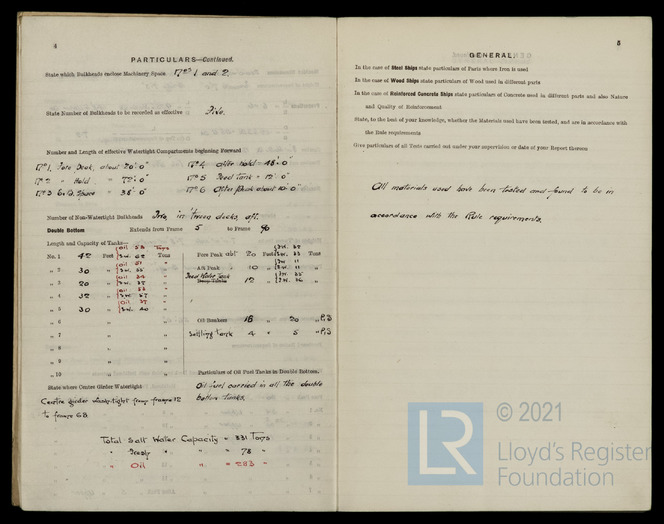 4
PARTICULARS—Continued.
State which Bulkheads enclose Machinery Space Nos 1 and 2.
State Number of Bulkheads to be recorded as effective Five.
Number and Length of effective Watertight Compartments beginning Forward
No 1. Fore Peak, about 20'-0"
No 2 " Hold 72'-0"
No 3 Space = 38'-0"
No 4 After Hold = 48'-0"
No 5 Feed Tank = 12'-0"
No 6 After Peak about 10'-0"
Number of Non-Watertight Bulkheads in 'tween decks, aft.
Double Bottom Extends from Frame 5 to Frame 90
Length and Capacity of Tanks—
No. 1 42 Feet Tons
" 2 30 "
" 3 20 "
" 4 32 "
" 5 30 "
" 6 "
" 7 "
" 8 "
" 9 "
" 10 "
Fore Peak abt 20 Feet Tons
Aft Peak " 10 "
Feed Water Tank 12 "
Oil Bunkers 16 " 20 " P,S
Settling tank 4 " 5 " P,S
State where Centre Girder Watertight
Centre girder watertight from frame 12
to frame 68
Particulars of Oil Fuel Tanks in Double Bottom.
Oil fuel carried in all the double
bottom tanks.
Total Salt Water Capacity = 331 Tons
" Fresh " " = 78 "
" Oil " " = 293 "
5
GENERAL
In the case of Steel Ships state particulars of Parts where Iron is used
In the case of Wood Ships state particulars of Wood used in different parts
In the case of Reinforced Concrete Ships state particulars of Concrete used in different parts and also Nature
and Quality of Reinforcement
State, to the best of your knowledge, whether the Materials used have been tested, and are in accordance with
the Rule requirements
Give particulars of all Tests carried out under your supervision or date of your Report thereon
All materials used have been tested and found to be in
accordance with the Rule requirements.
LR
© 2021
Lloyd's Register
Foundation